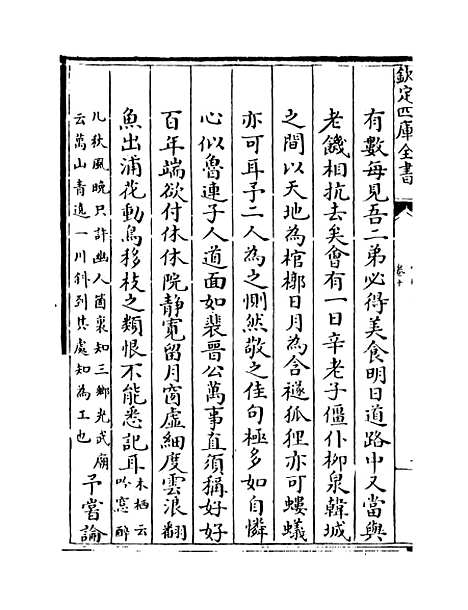 欽定四庫全書
卷十
有數每見吾二弟必得美食明日道路中又當與
老饑相抗去矣會有一日辛老子僵仆柳泉韓城
之間以天地為棺槨日月為含襚狐狸亦可螻蟻
亦可耳予二人為之惻然敬之佳句極多如自憐
心似魯連子人道面如裴晉公萬事直須稱好好
百年端欲付休休院靜寛留月窗虛細度雲浪翻
魚出浦花動鳥移枝之類恨不能悉記耳
木栖云
吟窓醉
几秋風晩只許幽人箇裏知三鄉光武廟
云萬山青遶一川斜到其處知為工也
予嘗論